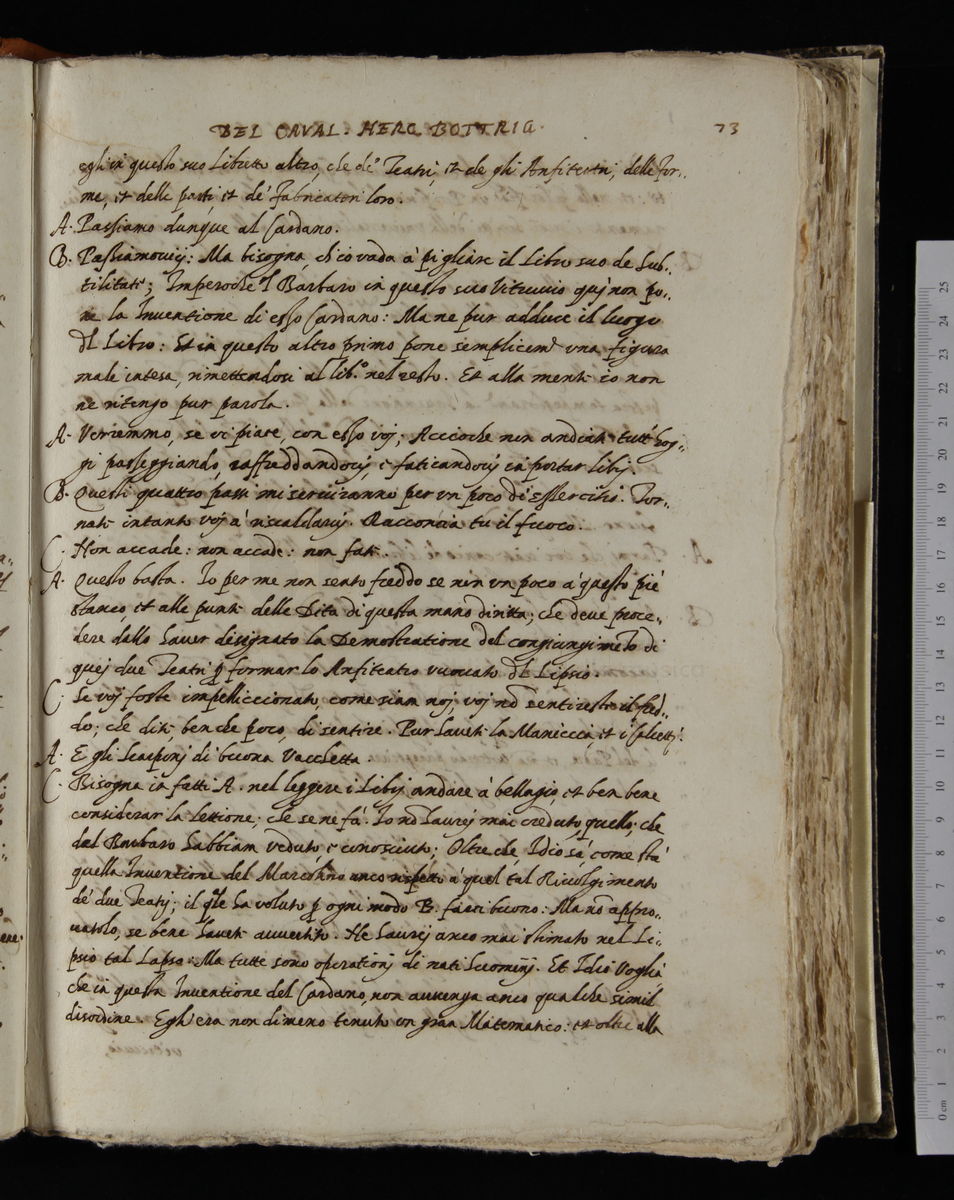 DEL CAVAL. HERC. BOTTRIG. 73
egli in questo suo Libretto altro, che de' Teatri, et de gli Anfiteatri, delle for-
me, et delle parti, et de' fabricatori loro.
A. Passiamo dunque al Cardano.
B. Passiamovij: Ma bisogna, ch'io vada à pigliare il Libro suo de Sub-
tilitate; Imperoche 'l Barbaro in questo suo Vitruvio quj non po-
ne la Inventione di esso Cardano: Ma ne pur adduce il luogo
del Libro: Et in questo altro primo pone semplicem.te una figura
male intesa, rimettendosi al lib.o nel resto. Et alla mente io non
ne ritengo pur parola.
A. Verremmo, se vi piace, con esso voj; Acciochè non andiate tutt'hog-
gi passeggiando, raffreddandovj, e faticandovj in portar libri.
B. Questi quattro passi mi serviranno per un poco di essercitio. Tor-
nate intanto voj à riscaldarvj. Racconcia tu il fuoco.
C. Non accade: non accade: non fate.
A. Questo basta. Io per me non sento freddo se non un poco à questo piè
stanco, et alle punte delle Dita di questa mano diritta; che deve proce-
dere dallo haver disignato la Demostratione del congiungimeto di
quej due Teatri p formar lo Anfiteatro vuovato del Lipsio.
C. Se voj foste impelliccionato, come siam noj, voj nō sentireste il fred-
do; che dite, benche poco, di sentire. Pur havete la Maniccia, et i Calcetti.
A. E gli Scarponj di buona Vacchetta.
C. Bisogna in fatti A. nel leggere i Libri andare à bellagio, et ben bene
considerar la lettione, che se ne fà. Io nō haurej mai creduto quello, che
del Barbaro habbiam veduto, e conosciuto; Oltre che, Idio sà come stà
quella Inventione del Marcolino anco rispetto à quel tal Rivolgimento
de' due Teatrj; il qle ha voluto p ogni modo B. farci buono: Ma nō appro-
vatolo, se bene havete avvertito. Ne haurej anco mai stimato nel Li-
psio tal Lapso: Ma tutte sono operationj di nati huominj. Et Idio voglia
che in questa Inventione del Cardano, non avvenga anco qualche simil
disordine. Egli era non dimeno tenuto un gran Matematico: et oltre alla